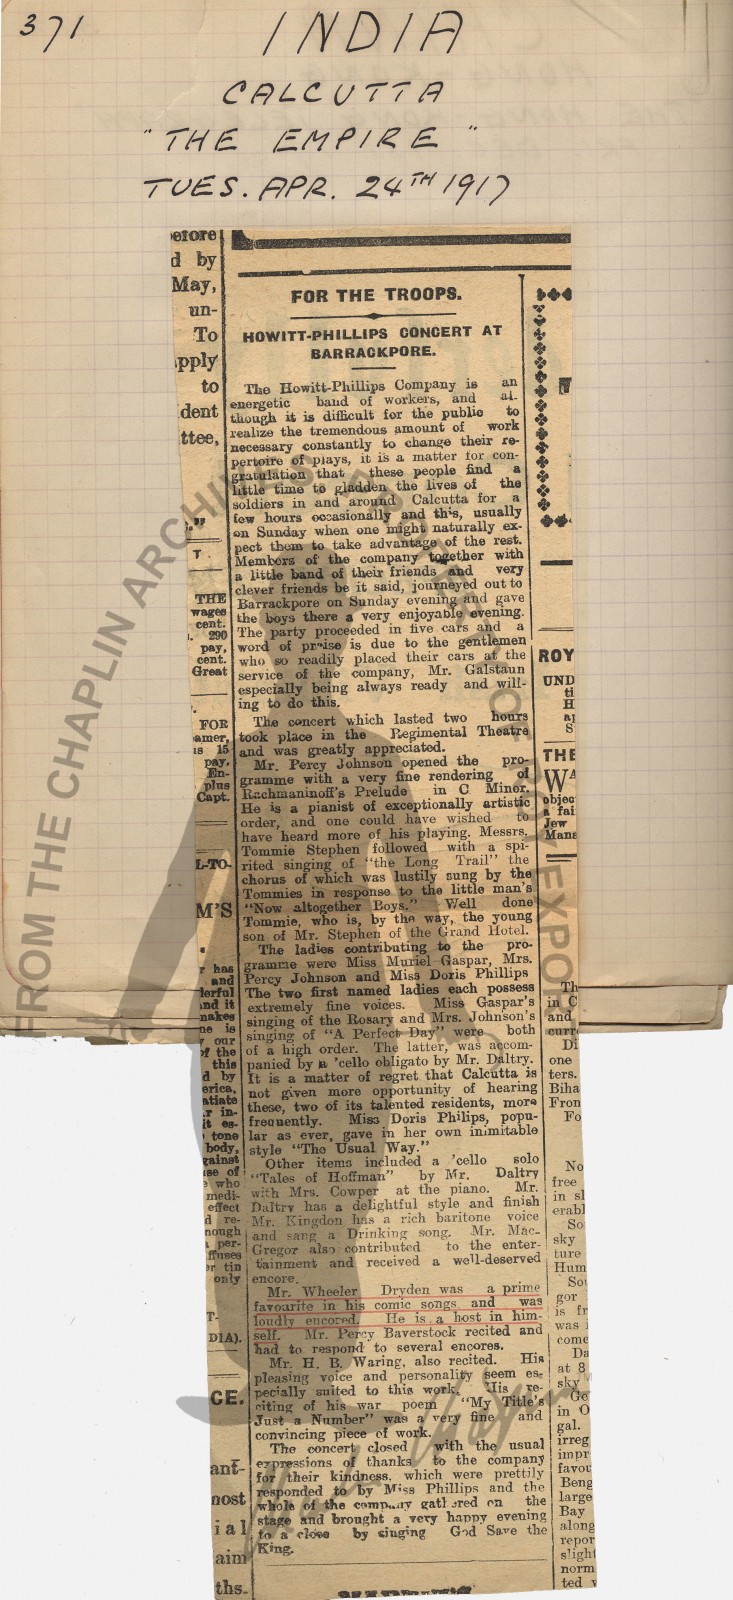 371
INDIA
CALCUTTA
"THE EMPIRE"
TUES. APR. 24TH 1917
FOR THE TROOPS.
HOWITT-PHILLIPS CONCERT AT
BARRACKPORE.
The Howitt-Phillips Company is an
energetic band of workers, and al-
though it is difficult for the public to
realize the tremendous amount of work
necessary constantly to change their re-
pertoire of plays, it is a matter for con-
gratulation that these people find a
little time to gladden the lives of the
soldiers in and around Calcutta for a
few hours occasionally and this, usually
on Sunday when one might naturally ex-
pect them to take advantage of the rest.
Members of the company together with
a little band of their friends and very
clever friends be it said, journeyed out to
Barrackpore on Sunday evening and gave
the boys there a very enjoyable evening.
The party proceeded in five cars and a
word of praise is due to the gentlemen
who so readily placed their cars at the
service of the company, Mr. Galstaun
especially being always ready and will-
ing to do this.
The concert which lasted two hours
took place in the Regimental Theatre
and was greatly appreciated.
Mr. Percy Johnson opened the pro-
gramme with a very fine rendering of
Rachmaninoff's Prelude in C Minor.
He is a pianist of exceptionally artistic
order, and one could have wished to
have heard more of his playing. Messrs.
Tommie Stephen followed with a spi-
rited singing of "the Long Trail" the
chorus of which was lustily sung by the
Tommies in response to the little man's
"Now altogether Boys." Well done
Tommie, who is, by the way, the young
son of Mr. Stephen of the Grand Hotel.
The ladies contributing to the pro-
gramme were Miss Muriel Gaspar, Mrs.
Percy Johnson and Miss Doris Phillips
The two first named ladies each possess
extremely fine voices. Miss Gaspar's
singing of the Rosary and Mrs. Johnson's
singing of "A Perfect Day" were both
of a high order. The latter, was accom-
panied by a 'cello obligato by Mr. Daltry.
It is a matter of regret that Calcutta is
not given more opportunity of hearing
these, two of its talented residents, more
frequently. Miss Doris Philips, popu-
lar as ever, gave in her own inimitable
style "The Usual Way."
Other items included a 'cello solo
"Tales of Hoffman" by Mr. Daltry
with Mrs. Cowper at the piano. Mr.
Daltry has a delightful style and finish
Mr. Kingdon has a rich baritone voice
and sang a Drinking song. Mr. Mac-
Gregor also contributed to the enter-
tainment and received a well-deserved
encore.
Mr. Wheeler Dryden was a prime
favourite in his comic songs and was
loudly encored. He is a host in him-
self. Mr. Percy Baverstock recited and
had to respond to several encores.
Mr. H. B. Waring, also recited. His
pleasing voice and personality seem es-
pecially suited to this work. His re-
citing of his war poem "My Title's
Just a Number" was a very fine and
convincing piece of work.
The concert closed with the usual
expressions of thanks to the company
for their kindness, which were prettily
responded to by Miss Phillips and the
whole of the company gathered on the
stage and brought a very happy evening
to a close by singing God Save the
King.
FROM THE CHAPLIN ARCHIVES PROPERTY OF ROY EXPORT